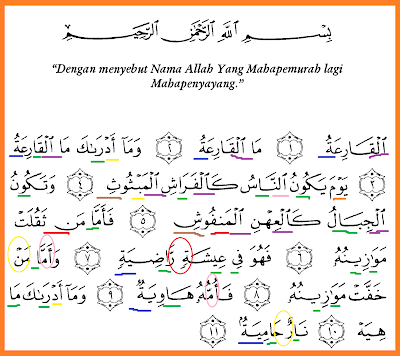 بِسْمِ اللَّهِ الرَّحْمَٰنِ الرَّحِيمِ
“Dengan menyebut Nama Allah Yang Mahapemurah lagi
Mahapenyayang.”
ٱلْقَارِعَةُ ١ مَا ٱلْقَارِعَةُ ٢ وَمَآ أَدْرَىٰكَ مَا ٱلْقَارِعَةُ
٣ يَوْمَ يَكُونُ ٱلنَّاسُ كَٱلْفَرَاشِ ٱلْمَبْثُوثِ ٤ وَتَكُونُ
ٱلْجِبَالُ كَٱلْعِهْنِ ٱلْمَنفُوشِ ٥ فَأَمَّا مَن ثَقُلَتْ
مَوَٰزِينُهُۥ ٦ فَهُوَ فِى عِيشَةٍ رَّاضِيَةٍ ٧ وَأَمَّا مَنْ
خَفَّتْ مَوَٰزِينُهُۥ ٨ فَأُمُّهُۥ هَاوِيَةٌ ٩ وَمَآ أَدْرَىٰكَ مَا
هِيَهْ ١٠ نَارٌ حَامِيَةٌۢ ١١